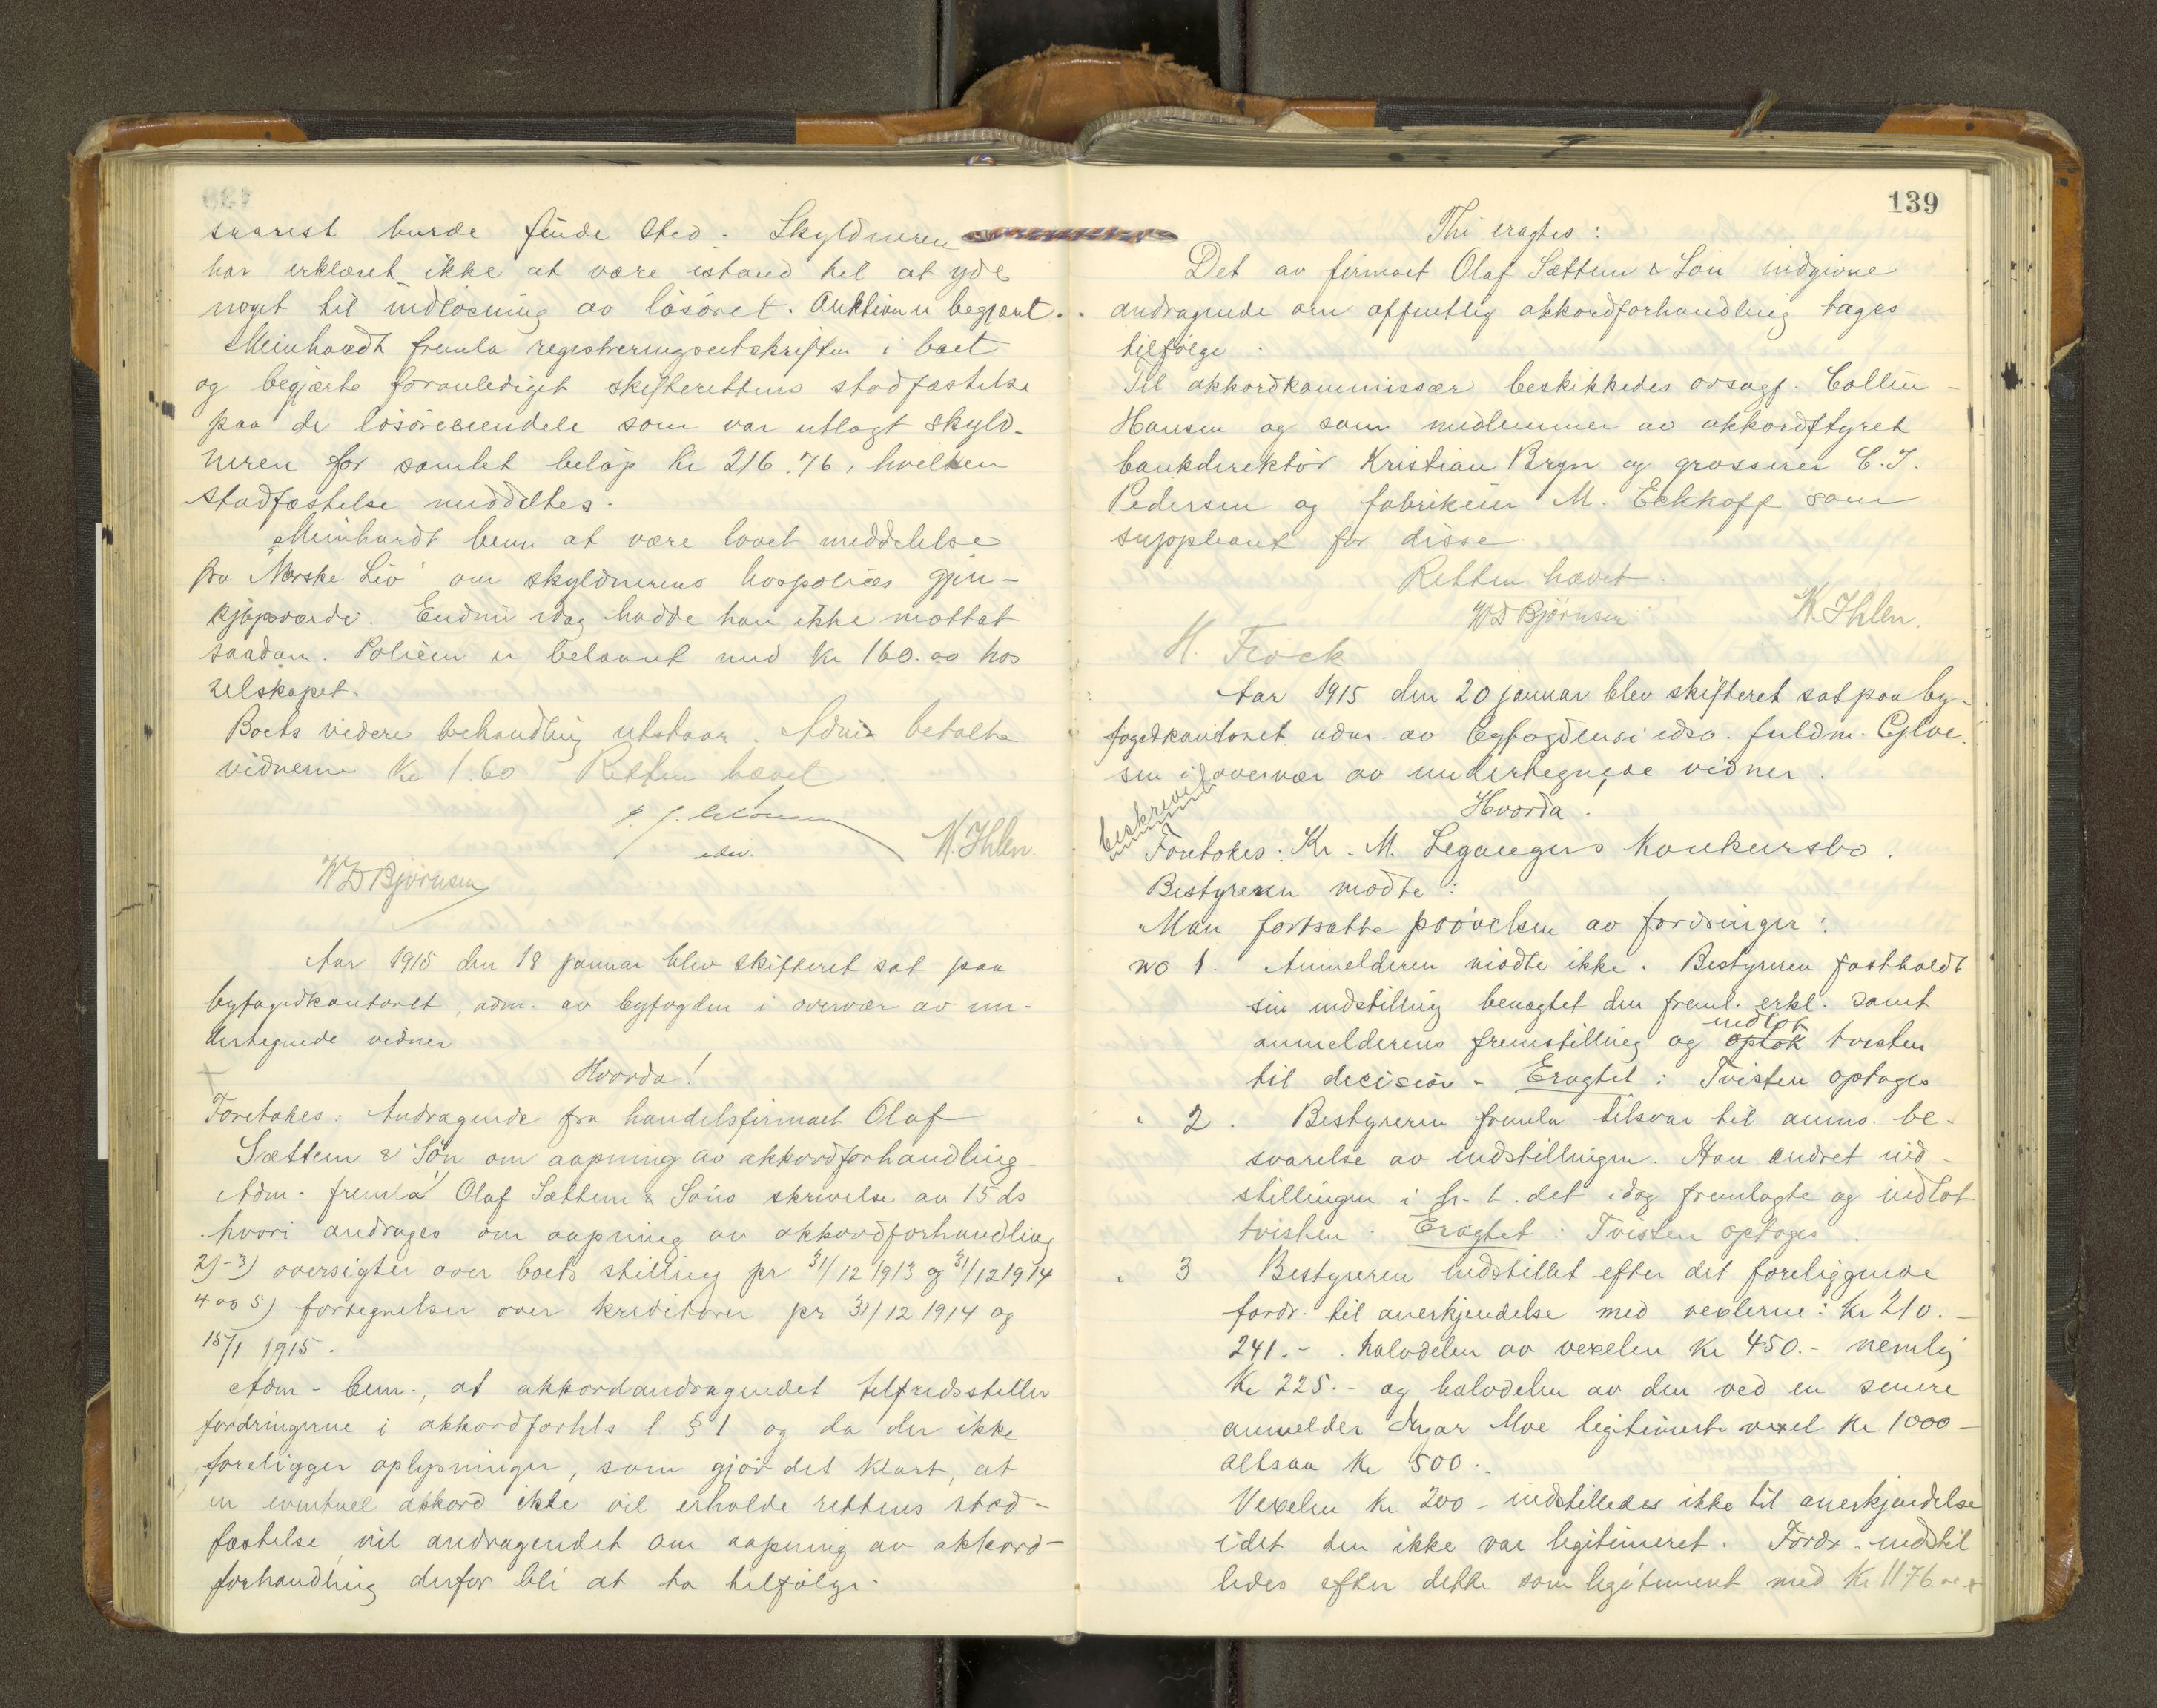 snarest burde finde sted. Skyldneren
har erklæret ikke at være istand til at yde
noget til indløsning av løsøret. Auktion er begjært.
Meinhardt fremla registreringsutskriften i boet
og begjærte foranlediget skifterettens stadfæstelse
paa de løsøreeiendele som var utlagt skyld-
neren for samlet beløp kr 216.76, hvilken
stadfæstelse meddeltes.
Meinhardt bem at være lovet meddelelse
fra "Norske Liv" om skyldnerens livspolices gjen-
kjøpsværdi. Endnu idag hadde han ikke mottat
saadan. Policen er belaant med kr 160.00 hos
selskapet.
Boets videre behandling utstaar. Adm betalte
vidnerne kr 1.60 Retten hævet
edsv.
K. Ihlen.
W D Bjørnsen
Aar 1915 den 18 januar blev skifteret sat paa
byfogedkontoret, adm. av byfogden i overvær av un-
dertegnede vidner
Hvorda!
Foretokes: Andragende fra handelsfirmaet Olaf
Sættem & Søn om aapning av akkordforhandling.
Adm. fremla 1/ Olaf Sættem & Søns skrivelse av 15 ds
hvori andrages om aapning av akkordforhandling
2)-3) oversigter over boets stilling pr 31/12 1913 og 31/12 1914
4 og 5) fortegnelser over kreditorer pr 31/12 1914 og
15/1 1915.
Adm. bem., at akkordandragendet tilfredsstiller
fordringerne i akkordforhls l. § 1 og da der ikke
foreligger oplysninger, som gjør det klart, at
en eventuel akkord ikke vil erholde rettens stad-
fæstelse, vil andragendet om aapning av akkord-
forhandling derfor bli at ta tilfølge.
139
Thi eragtes:
Det av firmaet Olaf Sættem & Søn indgivne
andragende om offentlig akkordforhandling tages
tilfølge.
Til akkordkommissær beskikkedes ovsagf. Collin-
Hansen og som medlemmer av akkordstyret
bankdirektør Kristian Bryn og grosserer C. J.
Pedersen og fabrikeier M. Eckhoff som
suppleant for disse.
Retten hævet.
W D Bjørnsen K. Ihlen.
H. Frock
Aar 1915 den 20 januar blev skifteret sat paa by-
fogedkontoret adm. av byfogdens edsv. fuldm.
sen i overvær av undertegnede vidner.
Hvorda!
beskrevet
Foretokes: Kr. M. Legangers konkursbo.
Bestyreren mødte:
Man fortsatte prøvelsen av fordringer:
no 1. Anmelderen mødte ikke. Bestyreren fastholdt
sin indstilling benegtet den freml. erkl. samt
indlot
anmelderens fremstilling og optok tvisten
til decision. Eragtet: Tvisten optages
" 2. Bestyreren fremla tilsvar til anms. be-
svarelse av indstillingen. Han endret ind-
stillingen i h. t. det idag fremlagte og indlot
tvisten. Eragtet: Tvisten optages.
" 3 Bestyreren indstillet efter det foreliggende
fordr. til anerkjendelse med vexlerne: kr 210.-
241.- . halvdelen av vexelen kr 450.- nemlig
kr 225.- og halvdelen av den ved en senere
anmelder Ingar Moe legitimerte vexel kr 1000-
altsaa kr 500.-
Vexelen kr 200 - indstilledes ikke til anerkjendelse
idet den ikke var legitimeret. Fordr. indstil
ledes efter dette som legitimeret med kr 1176.